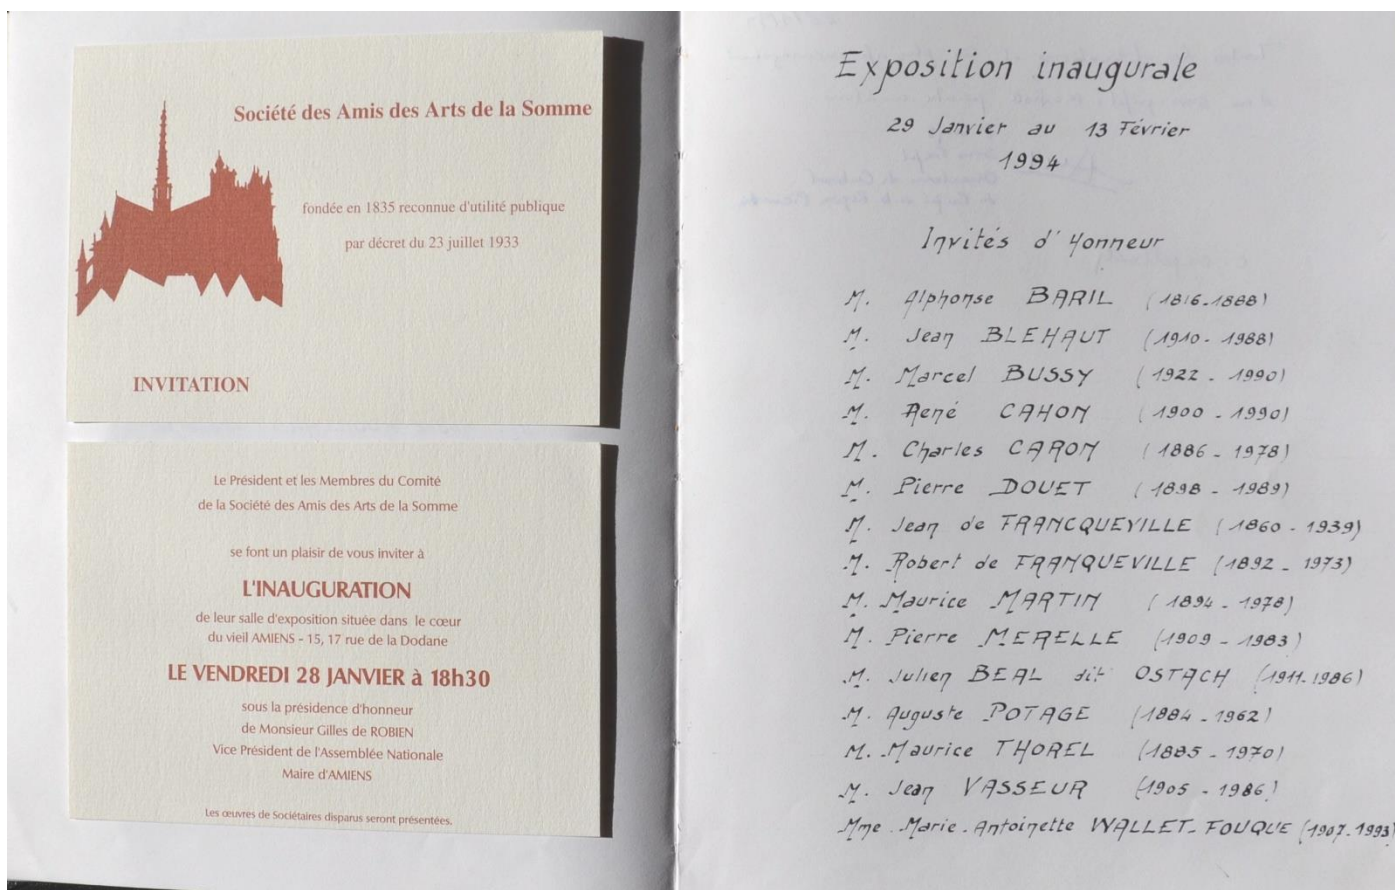 Société des Amis des Arts de la Somme
fondée en 1835 reconnue d'utilité publique
par décret du 23 juillet 1933
INVITATION
Le Président et les Membres du Comité
de la Société des Amis des Arts de la Somme
se font un plaisir de vous inviter à
L'INAUGURATION
de leur salle d'exposition située dans le cœur
du vieil AMIENS - 15, 17 rue de la Dodane
LE VENDREDI 28 JANVIER à 18h30
sous la présidence d'honneur
de Monsieur Gilles de ROBIEN
Vice Président de l'Assemblée Nationale
Maire d'AMIENS
Les œuvres de Sociétaires disparus seront présentées.
Exposition inaugurale
29 Janvier au 13 Février
1994
Invités d'Honneur
M. Alphonse BARIL (1816-1888)
M. Jean BLEHAUT (1910-1988)
M. Marcel BUSSY (1922-1990)
M. René CAHON (1900-1990)
M. Charles CARON (1886-1978)
M. Pierre DOUET (1898-1989)
M. Jean de FRANCQUEVILLE (1860-1939)
M. Robert de FRANQUEVILLE (1892-1973)
M. Maurice MARTIN (1894-1978)
M. Pierre MERELLE (1909-1983)
M. Julien BEAL dit OSTACH (1911-1986)
M. Auguste POTAGE (1884-1962)
M. Maurice THOREL (1885-1970)
M. Jean VASSEUR (1905-1986)
Mme Marie-Antoinette WALLET-FOUQUE (1907-1993)